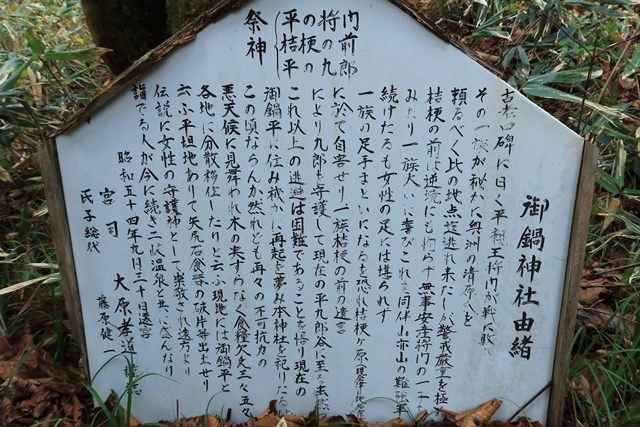 御鍋神社由緒
古老口碑に曰く平親王将門が戦に敗
その一族が秘かに奥州の清原氏を
頼るべく此の地点迄逃れ来たしが警戒厳重を極
桔梗の前は逆流にも拘らず無事安産将門の一子
みたり一族大いに喜びこれを同伴山亦山の難
続けたるも女性の足には堪られず
一族の足手まといになるを恐れ桔梗ヶ原
に於て自害せり一族桔梗の前の遺言
により九郎を守護して現在の平九郎谷に至る
これ以上の逃避は困難であることを悟り現在の
御鍋平に住み秘かに再起を夢み本神社を祀りたるは
この頃ならんか然れども再々の不可抗力の
悪天候に見舞われ木の実すらなく食糧欠乏三々五々
各地に分散移住したりと云ふ現地には御鍋平と
云ふ平坦地ありて矢尻石食器の破片等出土せり
伝説に女性の守護神として崇敬され遠方より
詣でる人が今に続き二岐温泉と共に盛んなり
昭和五十四年九月三十日
宮司 大原
氏子総代 藤原健一
祭神
平将内
桔の前
平九郎